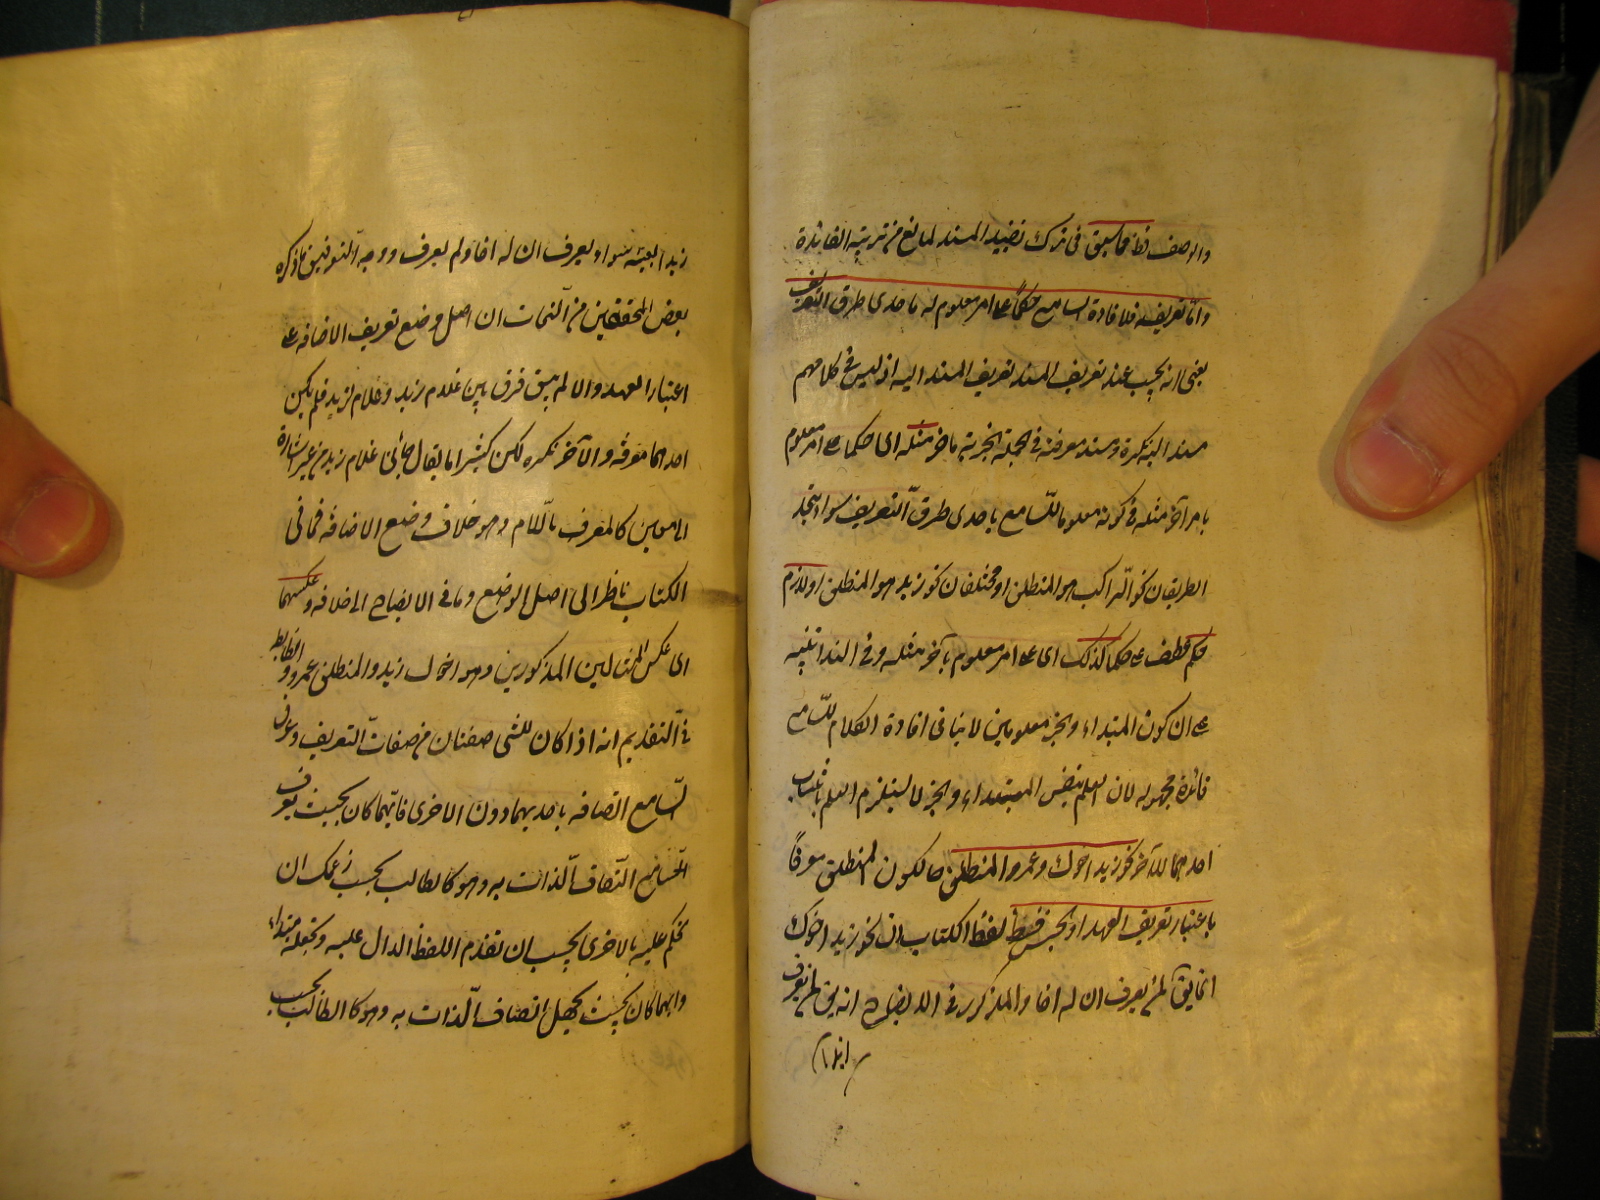 والوصف فظ مما سبق فى ترك تقييد المسند لمانع من تربية الفائدة
واما تعريفه فلافادة السامع حكما على امر معلوم له باحدى طرق التعريف
يعنى انه يجب عند تعريف المسند تعريف المسند اليه اذ ليس فى كلامهم
مسند اليه نكرة ومسند معرفة فى الجملة الخبرية بآخر مثله اى حكما على امر معلوم
بامر آخر مثله فى كونه معلوما للسامع باحدى طرق التعريف سواء يتحد
الطريقان نحو الراكب هو المنطلق او مختلفان نحو زيد هو المنطلق او لازم
حكم عطف على حكما كذلك اى على امر معلوم بآخر مثله وفى هذا تنبيه
على ان كون المبتداء والخبر معلومين لا ينافى افادة الكلام للسامع
فائدة مجهولة لان العلم بنفس المبتداء والخبر لا يستلزم العلم باسناد
احدهما للآخر نحو زيد اخوك وعمرو المنطلق حالكون المنطلق معرفا
باعتبار تعريف العهد او الجنس فظ لفظ الكتاب ان نحو زيد اخوك
انما يق لمن يعرف ان له اخا والمذكور فى الايضاح انه يق لمن يعرف
زيدا
زيدا بعينه سواء يعرف ان له اخا ولم يعرف ووجه التوفيق ما ذكره
بعض المحققين من النحاة ان اصل وضع تعريف الاضافة على
اعتبار العهد والا لم يبق فرق بين غلام زيد وغلام لزيد فلم يكن
احدهما معرفة والآخر نكرة لكن كثيرا ما يقال جائنى غلام زيد من غير اشارة
الى معين كالمعرف باللام وهو خلاف وضع الاضافة فما فى
الكتاب ناظر الى اصل الوضع وما فى الايضاح الى خلافه وعكسهما
اى عكس المثالين المذكورين وهو اخوك زيد والمنطلق عمرو والضابط
فى التقديم انه اذا كان للشى صفتان من صفات التعريف وعرف
السامع اتصافه باحديهما دون الاخرى فايهما كان بحيث يعرف
السامع اتصاف الذات به وهو كالطالب بحسب زعمك ان
تحكم عليه بالاخرى يجب ان تقدم اللفظ الدال عليه وتجعله مبتداء
وايهما كان بحيث يجهل اتصاف الذات به وهو كالطالب بحسب